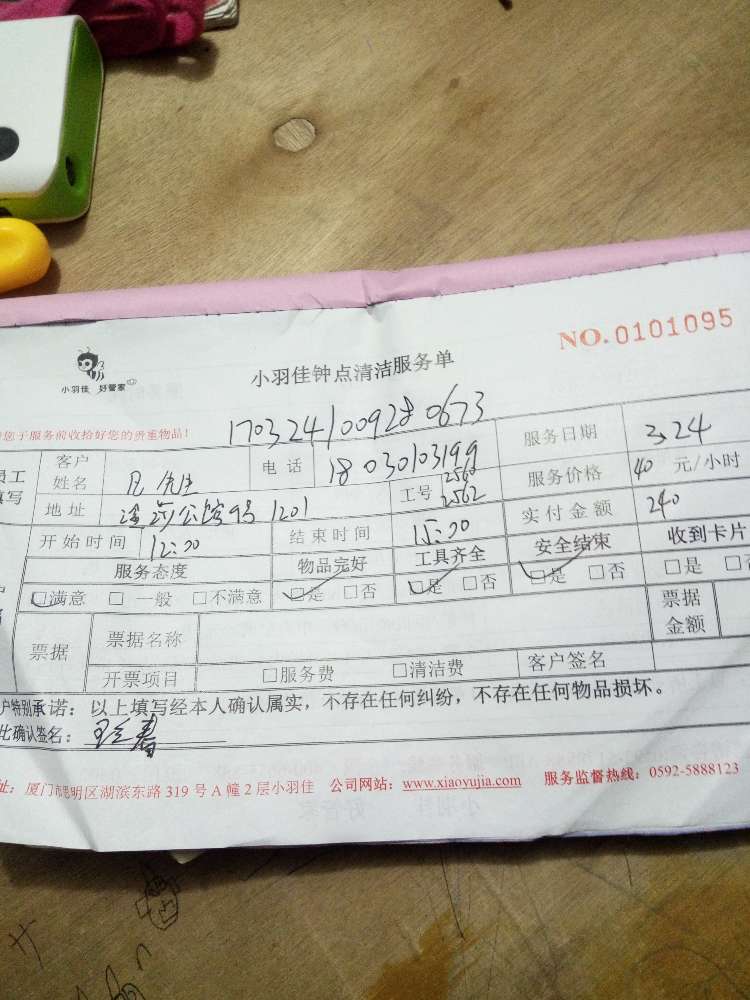 NO.0101095
小羽佳 好管家
小羽佳钟点清洁服务单
您于服务前收拾好您的贵重物品!
170324100928 0673
员工 填写 客户姓名 先生 电话 18030103199 服务日期 3.24
地址 公馆9号 1201 工号 2560 2562 服务价格 40 元/小时
开始时间 12:30 结束时间 15:30 实付金额 240
服务态度 物品完好 工具齐全 安全结束 收到卡片
□满意 □一般 □不满意 □是 □否 □是 □否 □是 □否 □是 □否
票据 票据名称 票据金额
开票项目 □服务费 □清洁费 客户签名
户特别承诺:以上填写经本人确认属实,不存在任何纠纷,不存在任何物品损坏。
比确认签名:
址:厦门市思明区湖滨东路 319 号 A 幢 2 层小羽佳 公司网站:www.xiaoyujia.com 服务监督热线:0592-5888123